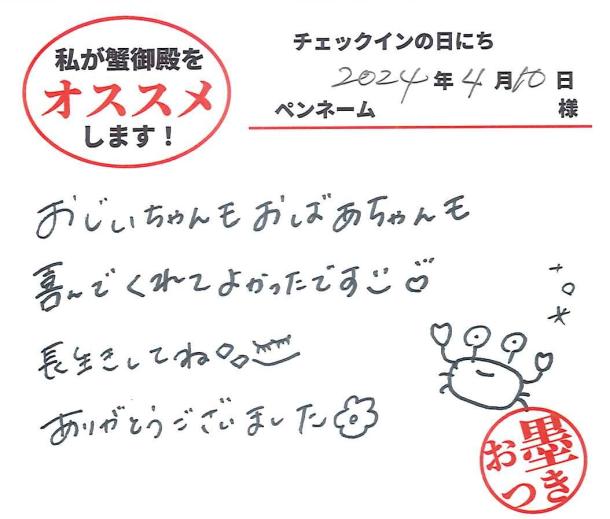 私が蟹御殿を
オススメ
します！
チェックインの日にち
2024年4月10日
ペンネーム 様
おじぃちゃんもおばあちゃんも
喜んでくれてよかったです
長生きしてね
ありがとうございました
お墨つき